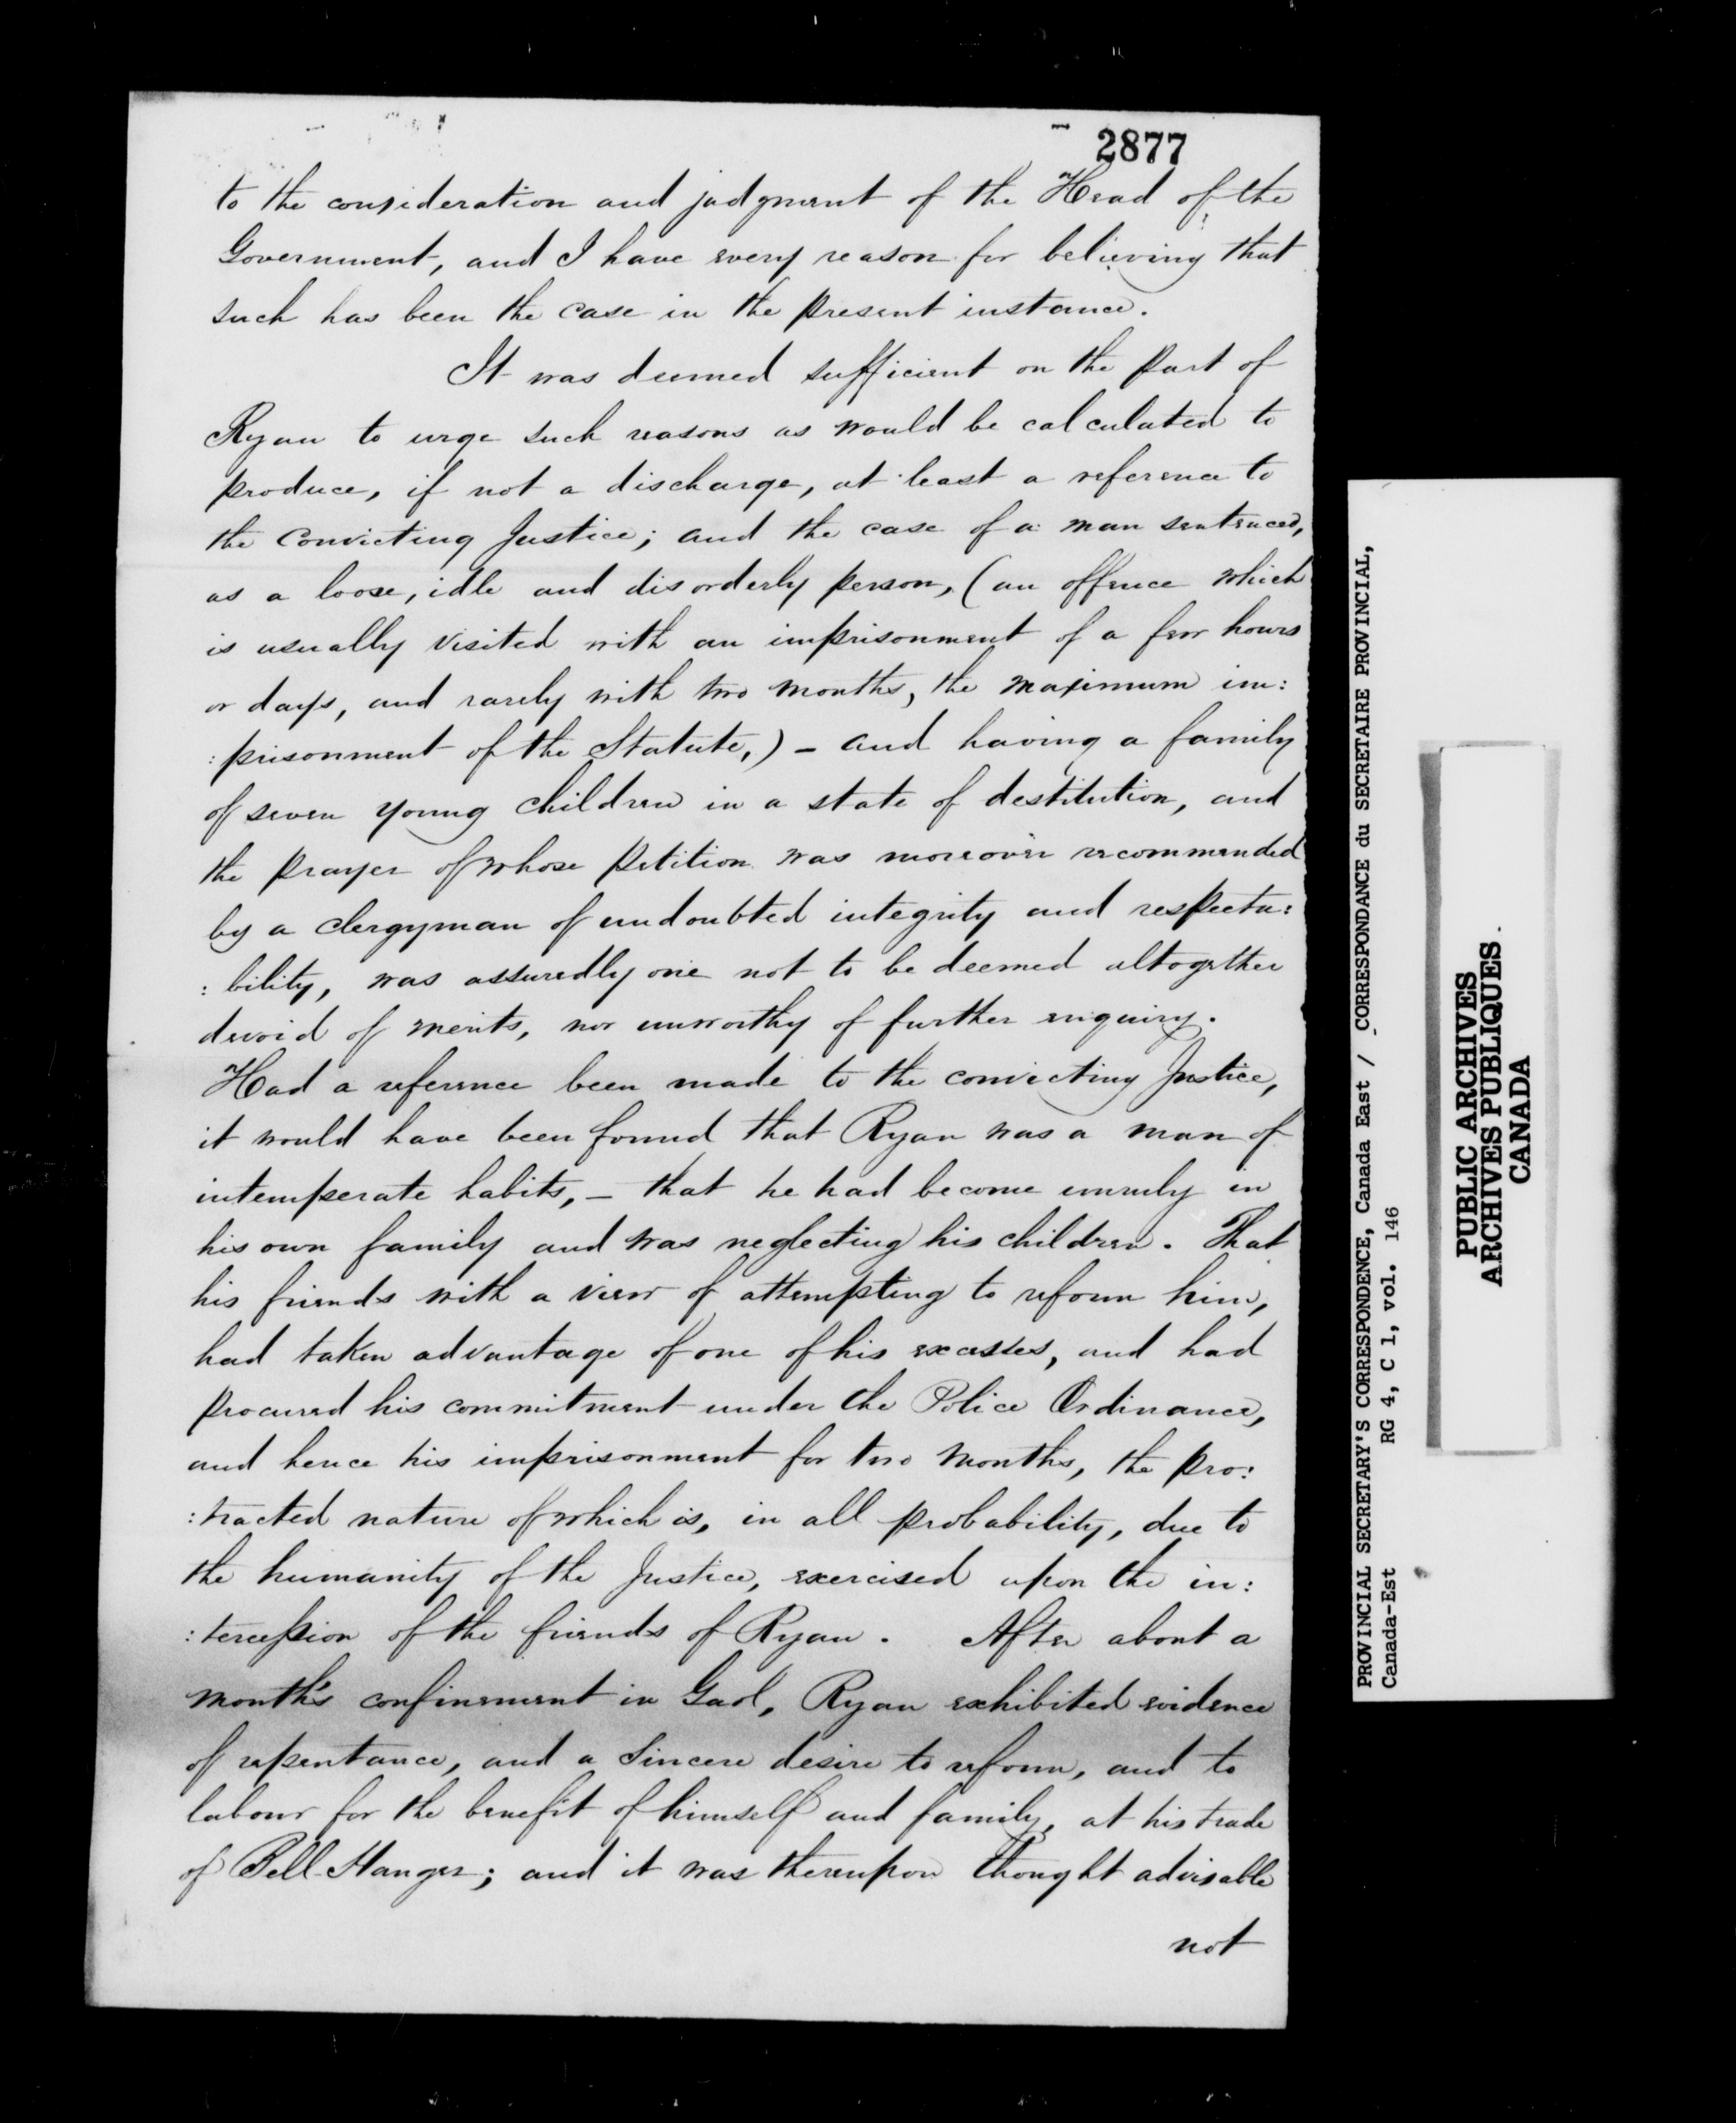 2877
to the consideration and judgment of the Head of the
Government, and I have every reason for believing that
such has been the case in the present instance.
It was deemed sufficient on the part of
Ryan to urge such reasons as would be calculated to
produce, if not a discharge, at least a reference to
the Convicting Justice; and the case of a man sentenced,
as a loose, idle and disorderly person, (an offence which
is usually visited with an imprisonment of a few hours
or days, and rarely with two months, the maximum im:
:prisonment of the Statute,) - and having a family
of seven young children in a state of destitution, and
the prayer of whose petition was moreover recommended
by a clergyman of undoubted integrity and respecta:
:bility, was assuredly one not to be deemed altogether
devoid of merits, nor unworthy of further enquiry.
Had a reference been made to the convicting Justice,
it would have been found that Ryan was a man of
intemperate habits, - that he had become unruly in
his own family and was neglecting his children. That
his friends with a view of attempting to reform him,
had taken advantage of one of his excesses, and had
procured his commitment under the Police Ordinance,
and hence his imprisonment for two months, the pro:
:tracted nature of which is, in all probability, due to
the humanity of the Justice, exercised upon the in:
:tercession of the friends of Ryan. After about a
month's confinement in Gaol, Ryan exhibited evidence
of repentance, and a sincere desire to reform, and to
labour for the benefit of himself and family, at his trade
of Bell Hanger; and it was thereupon thought advisable
not
PROVINCIAL SECRETARY'S CORRESPONDENCE, Canada East / CORRESPONDANCE du SECRETAIRE PROVINCIAL,
Canada-Est RG 4, C 1, vol. 146
PUBLIC ARCHIVES
ARCHIVES PUBLIQUES
CANADA